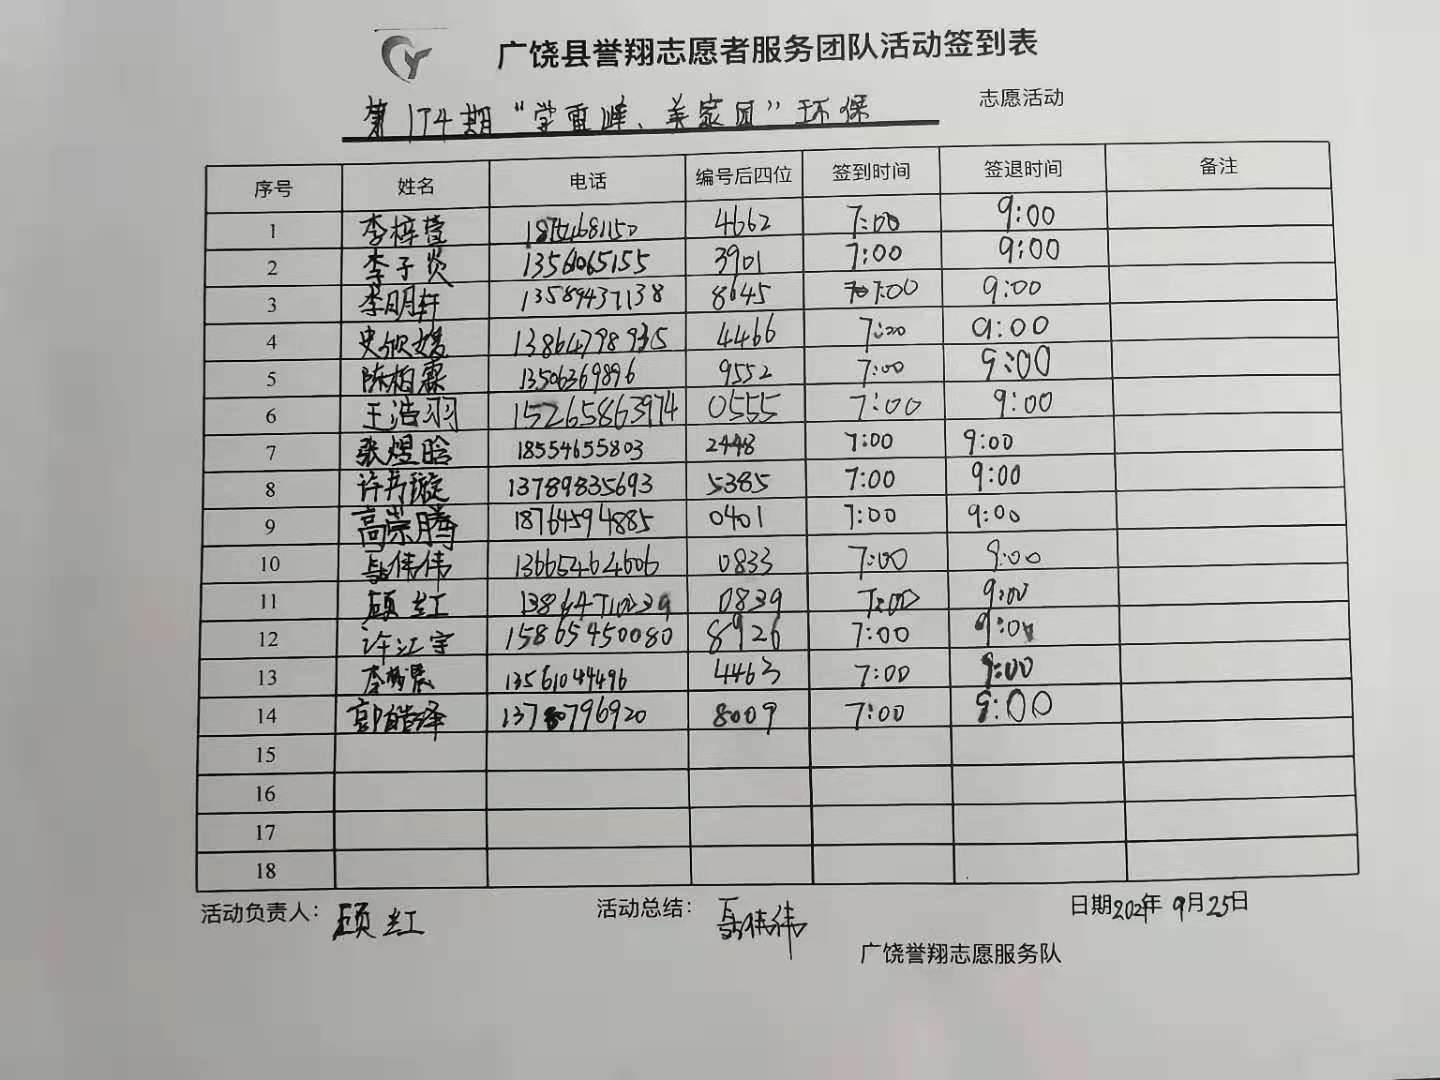 广饶县誉翔志愿者服务团队活动签到表
第174期“学雷峰、美家园”环保 志愿活动
序号 姓名 电话 编号后四位 签到时间 签退时间 备注
1 李梓萱 4662 7:00 9:00
2 李子炎 13561065155 3901 7:00 9:00
3 李明轩 13589437138 8645 7:00 9:00
4 史欣媛 13864798935 4466 7:20 9:00
5 陈柏霖 13506369896 9552 7:00 9:00
6 王浩羽 15265863974 0555 7:00 9:00
7 张煜晗 18554655803 2448 7:00 9:00
8 许丹璇 13789835693 5385 7:00 9:00
9 高崇腾 18764594885 0401 7:00 9:00
10 聂伟伟 13665464606 0833 7:00 9:00
11 顾红 0839 7:00 9:00
12 许江宇 15865450080 8926 7:00 9:00
13 李 13561044496 4463 7:00 9:00
14 郭皓泽 8009 7:00 9:00
15
16
17
18
活动负责人：顾红 活动总结：聂伟伟 日期 年 9月25日
广饶誉翔志愿服务队